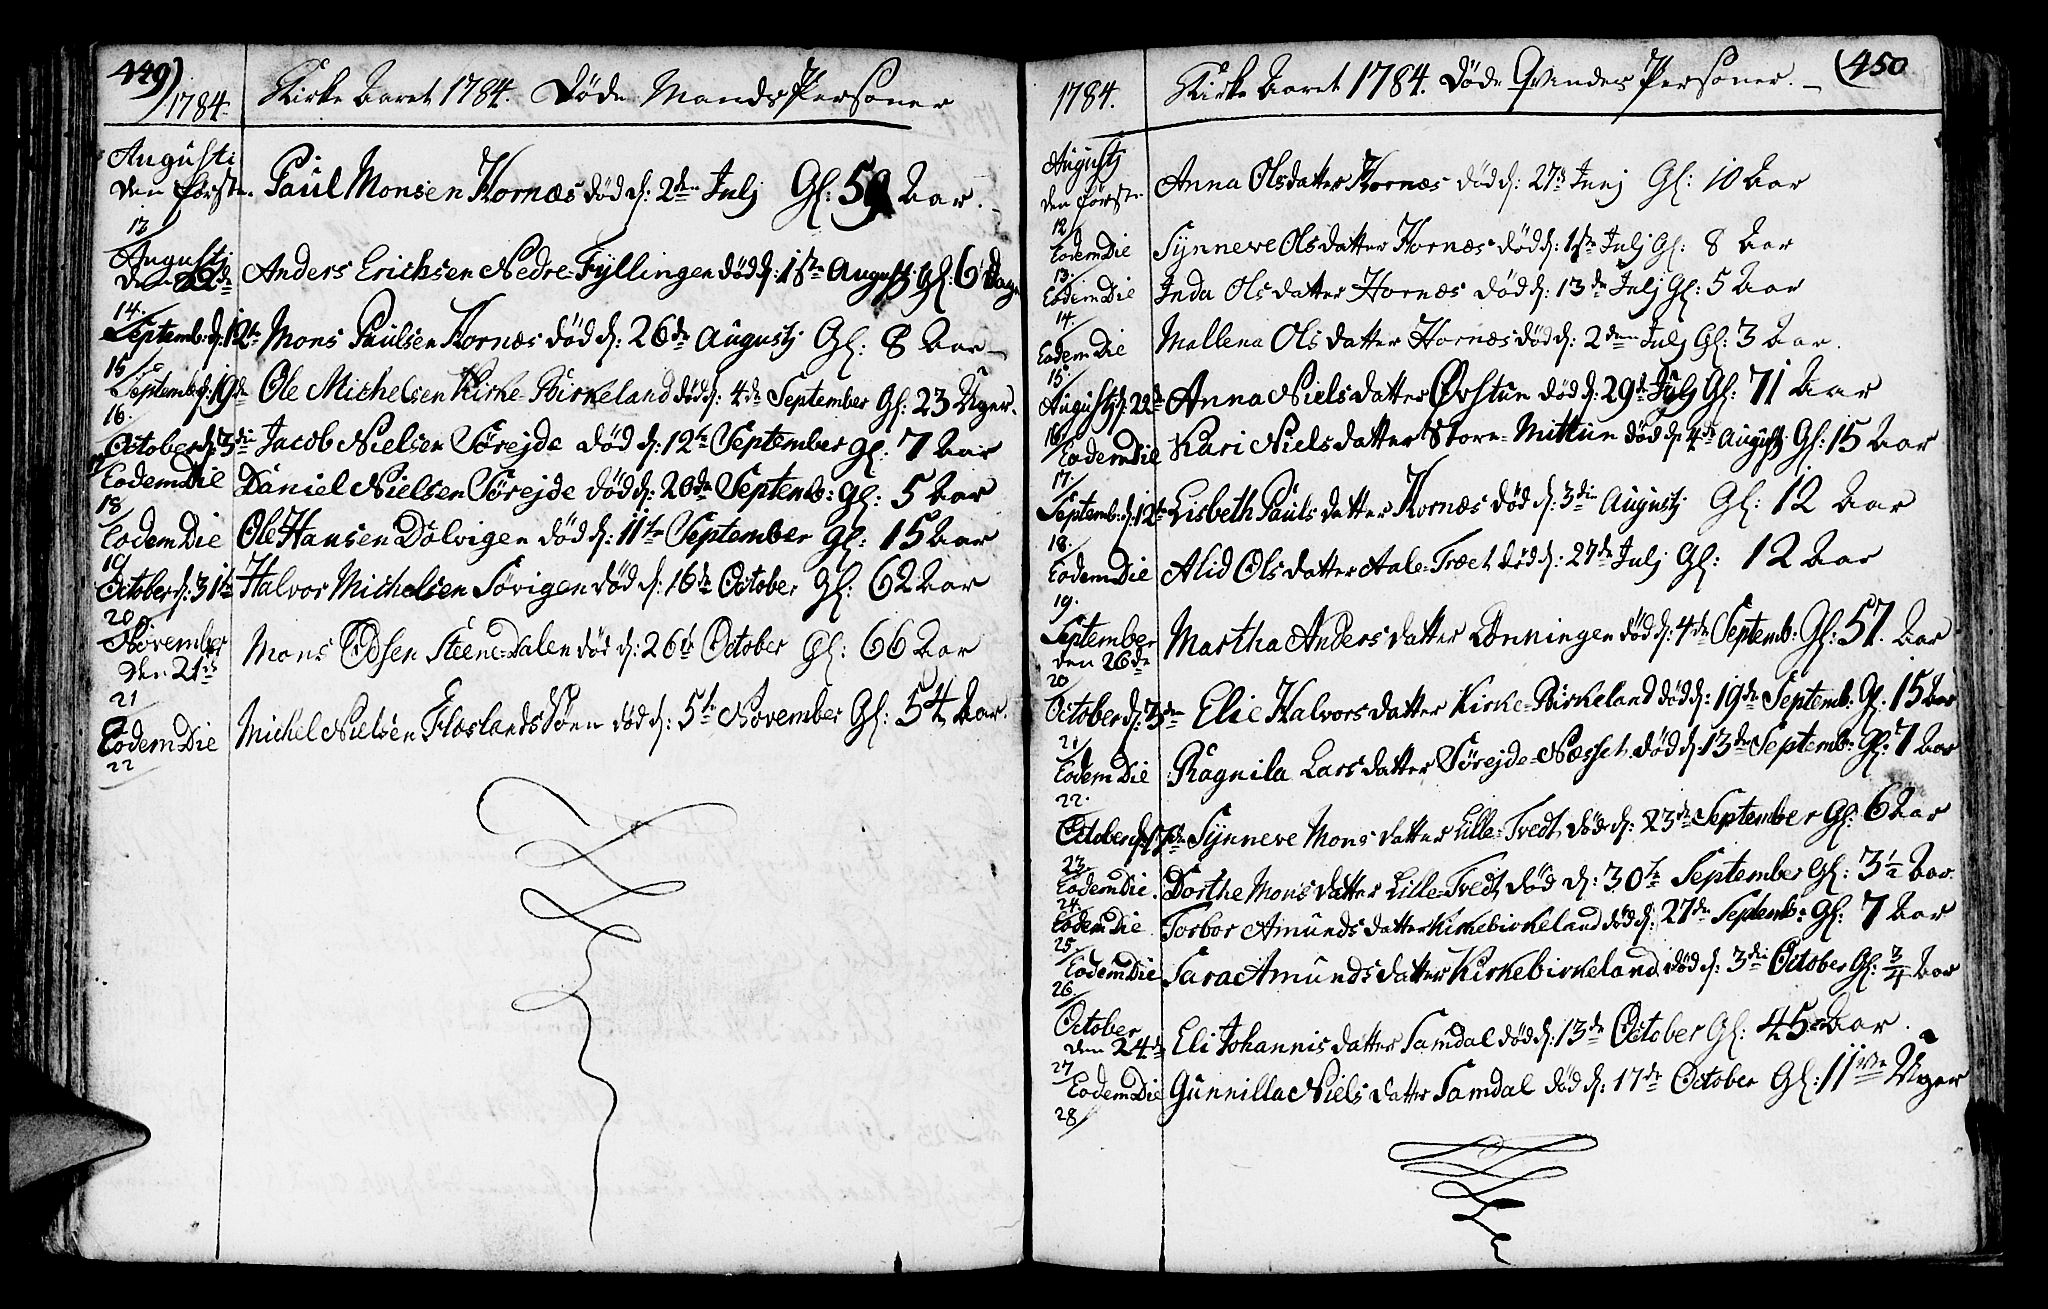 449)
1784. Kirke Aaret 1784. Døde Mands Personer
Augusti
den første. Paul Monsen Hornæs død d: 2den Julj Gl: 59 Aar.
13
Augusti
den 22de Anders Erichsen Nedre-Fyllingen død d: 1ste Augustj Gl: 6 Dage
14.
Septemb: d: 12te Mons Paulsen Hornæs død d: 26de Augustj Gl: 8 Aar
15
Septemb: d: 19de Ole Michelsen Kirke-Birkeland død d: 4de September Gl: 23 Uger.
16.
October d: 3die Jacob Nielsen Sørejde død d: 12te September Gl: 7 Aar
17
Eodem Die Daniel Nielsen Sørejde død d: 20de Septemb: Gl: 5 Aar
18
Eodem Die Ole Hansen Dolvigen død d: 11te September Gl: 15 Aar
19
October d: 31te Halvor Michelsen Søvigen død d: 16de October Gl: 62 Aar
20
November
den 21de Mons Odsen Steene-Dalen død d: 26de October Gl: 66 Aar
21
Eodem Die Michel Nielsen Fleslandsdøen død d: 5te November Gl: 54 Aar.
22
1784. Kirke Aaret 1784. Døde Qvindes Personer. (450
Augustj
den første Anna Olsdatter Hornæs død d: 27de Junj Gl: 10 Aar
12
Eodem Die Synneve Olsdatter Hornæs død d: 1ste Julj Gl: 8 Aar
13.
Eodem Die Inda Olsdatter Hornæs død d: 13de Julj Gl: 5 Aar
14.
Eodem Die Mallena Olsdatter Hornæs død d: 2den Julj Gl: 3 Aar.
15
Augustj d: 22de Anna Nielsdatter Øvstun død d: 29de Julj Gl: 71 Aar
16
Eodem Die Kari Nielsdatter Store-Mittun død d: 4de Augustj Gl: 15 Aar
17.
Septemb: d: 12te Lisbeth Pauls datter Hornæs død d: 3die Augustj Gl: 12 Aar
18.
Eodem Die Alid Olsdatter Aale-Træet død d: 27de Julj Gl: 12 Aar
19.
September
den 26de Martha Anders datter Lønningen død d: 4de Septemb: Gl: 57. Aar
20
October d: 3die Elie Halvors datter Kirke-Birkeland død d: 19de Septemb: Gl: 15 Aar
21
Eodem Die Ragnila Lars datter Sørejde-Næsset død d: 13de Septemb: Gl: 7 Aar
22.
October d: 17de Synneve Mons datter Lille-Tvedt død d: 23de September Gl: 6 Aar
23
Eodem Die. Dorthe Mons datter Lille-Tvedt død d: 30te September Gl: 3½ Aar.
24.
Eodem Die Torbor Amunds datter Kirkebirkeland død d: 27de Septemb: Gl: 7 Aar
25
Eodem Die Sara Amunds datter Kirkebirkeland død d: 3die October Gl: ¾ Aar
26.
October
den 24de Eli Johannis datter Samdal død d: 13de October Gl: 45 Aar.
27
Eodem Die Gunnilla Niels datter Samdal død d: 17de October Gl: 11 Uger
28